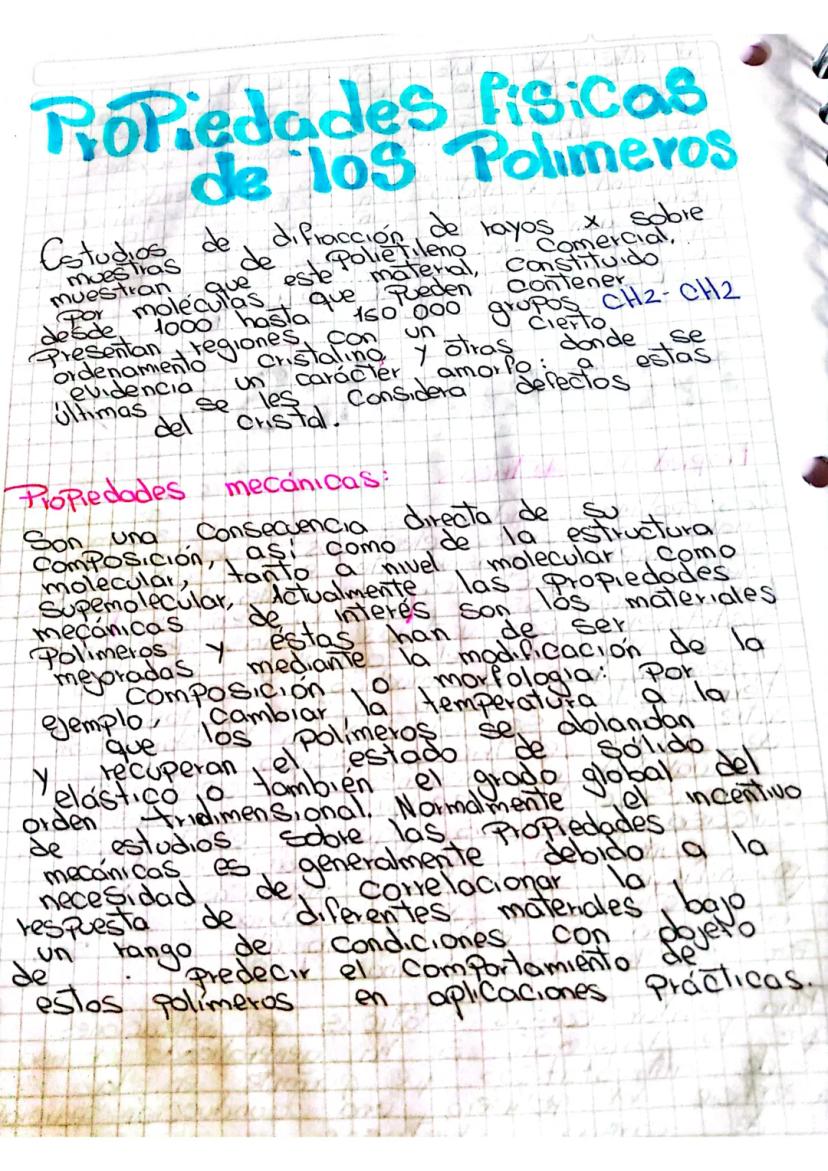 Propiedades físicas
de los Polimeros
Estudios de difracción de rayos x sobre
muestras de Polietileno Comercial,
muestran que este material, constituido
Por moléculas que pueden contener
desde 1000 hasta 150 000 grupos CH2-CH2
Presentan regiones, con un cierto
ordenamiento cristalino, y otras donde se
evidencia un carácter amorfo: a estas
últimas se les considera defectos
del cristal.
Propiedades mecánicas:
Son una consecuencia directa de su
composición, así como de la estructura
molecular, tanto a nivel molecular como
Supemolecular, Actualmente las Propiedades
mecánicas de interés son los materiales
Polímeros y éstas han de ser
mejoradas mediante la modificación de la
composición o morfología: Por
ejemplo, cambiar la temperatura a la
que los polímeros se ablandan
y recuperan el estado de sólido
elástico o también el grado global del
orden tridimensional. Normalmente el incentivo
de estudios sobre las Propiedades
mecánicas es generalmente debido a la
necesidad de correlacionar la
respuesta de diferentes materiales bajo
un rango de condiciones con objeto
de predecir el comportamiento de
estos polímeros en aplicaciones prácticas.